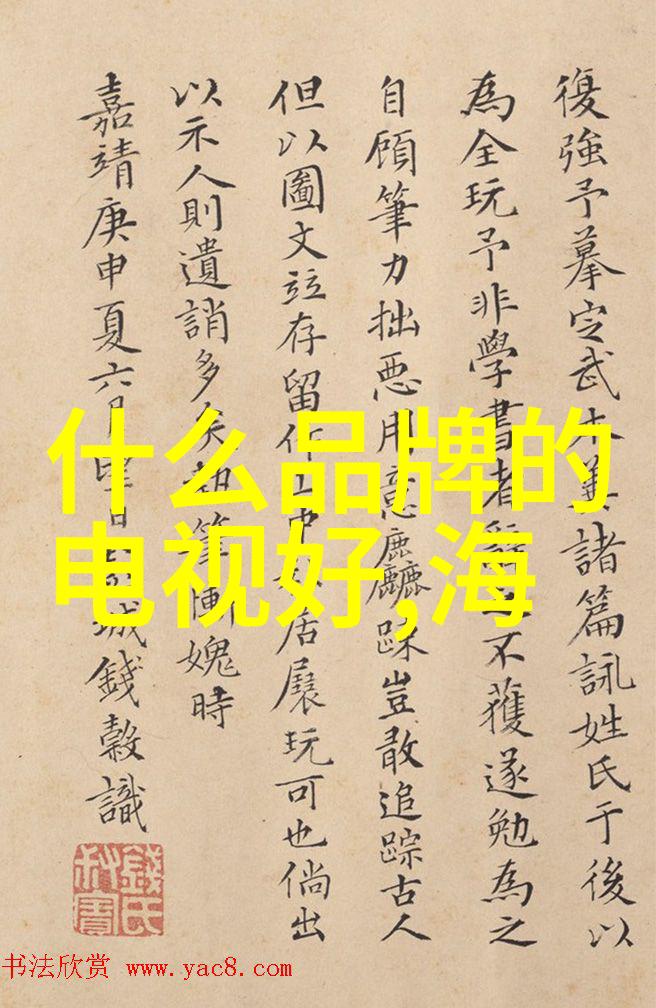 復強予摹㝎武本諸篇詠姓氏于後以
為全玩予非學書者不獲遂勉為之
自顧筆力拙惡用意麤踈豈敢追踪古人
但以圖文竝存留作居展玩可也倘出
以示人則遺誚多矣執筆慚媿時
嘉靖庚申夏六月日城錢榖識
什么品牌的
电视好,海
錢氏
书法欣赏 www.yac8.com